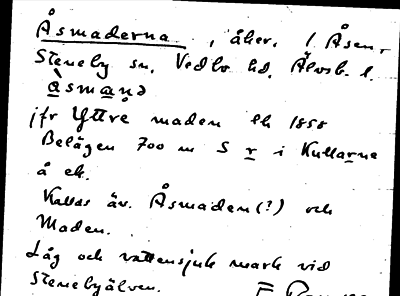 Åsmaderna, åker, / Åsen,
Steneby sn, Vedbo hd, Älvsb. l.
jfr Yttre maden Ek 1858
Belägen 700 m S r i Kullarna
å ek.
Kallas äv. Åsmaden (?) och
Maden.
Låg och vattensjuk mark vid
Stenebyälven.